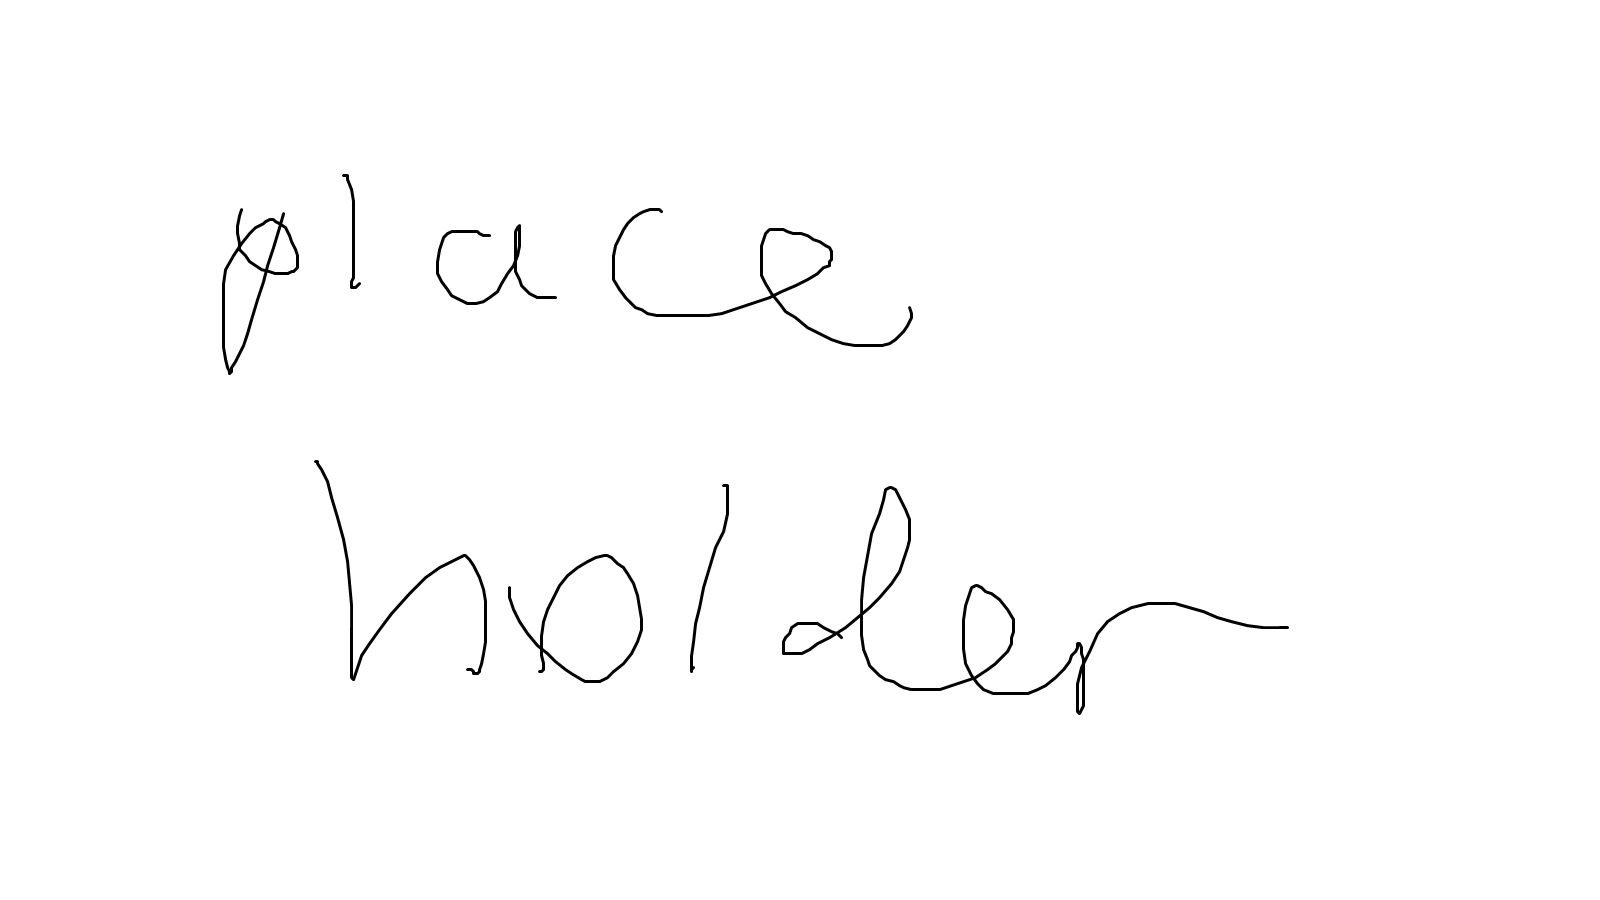 place
holder